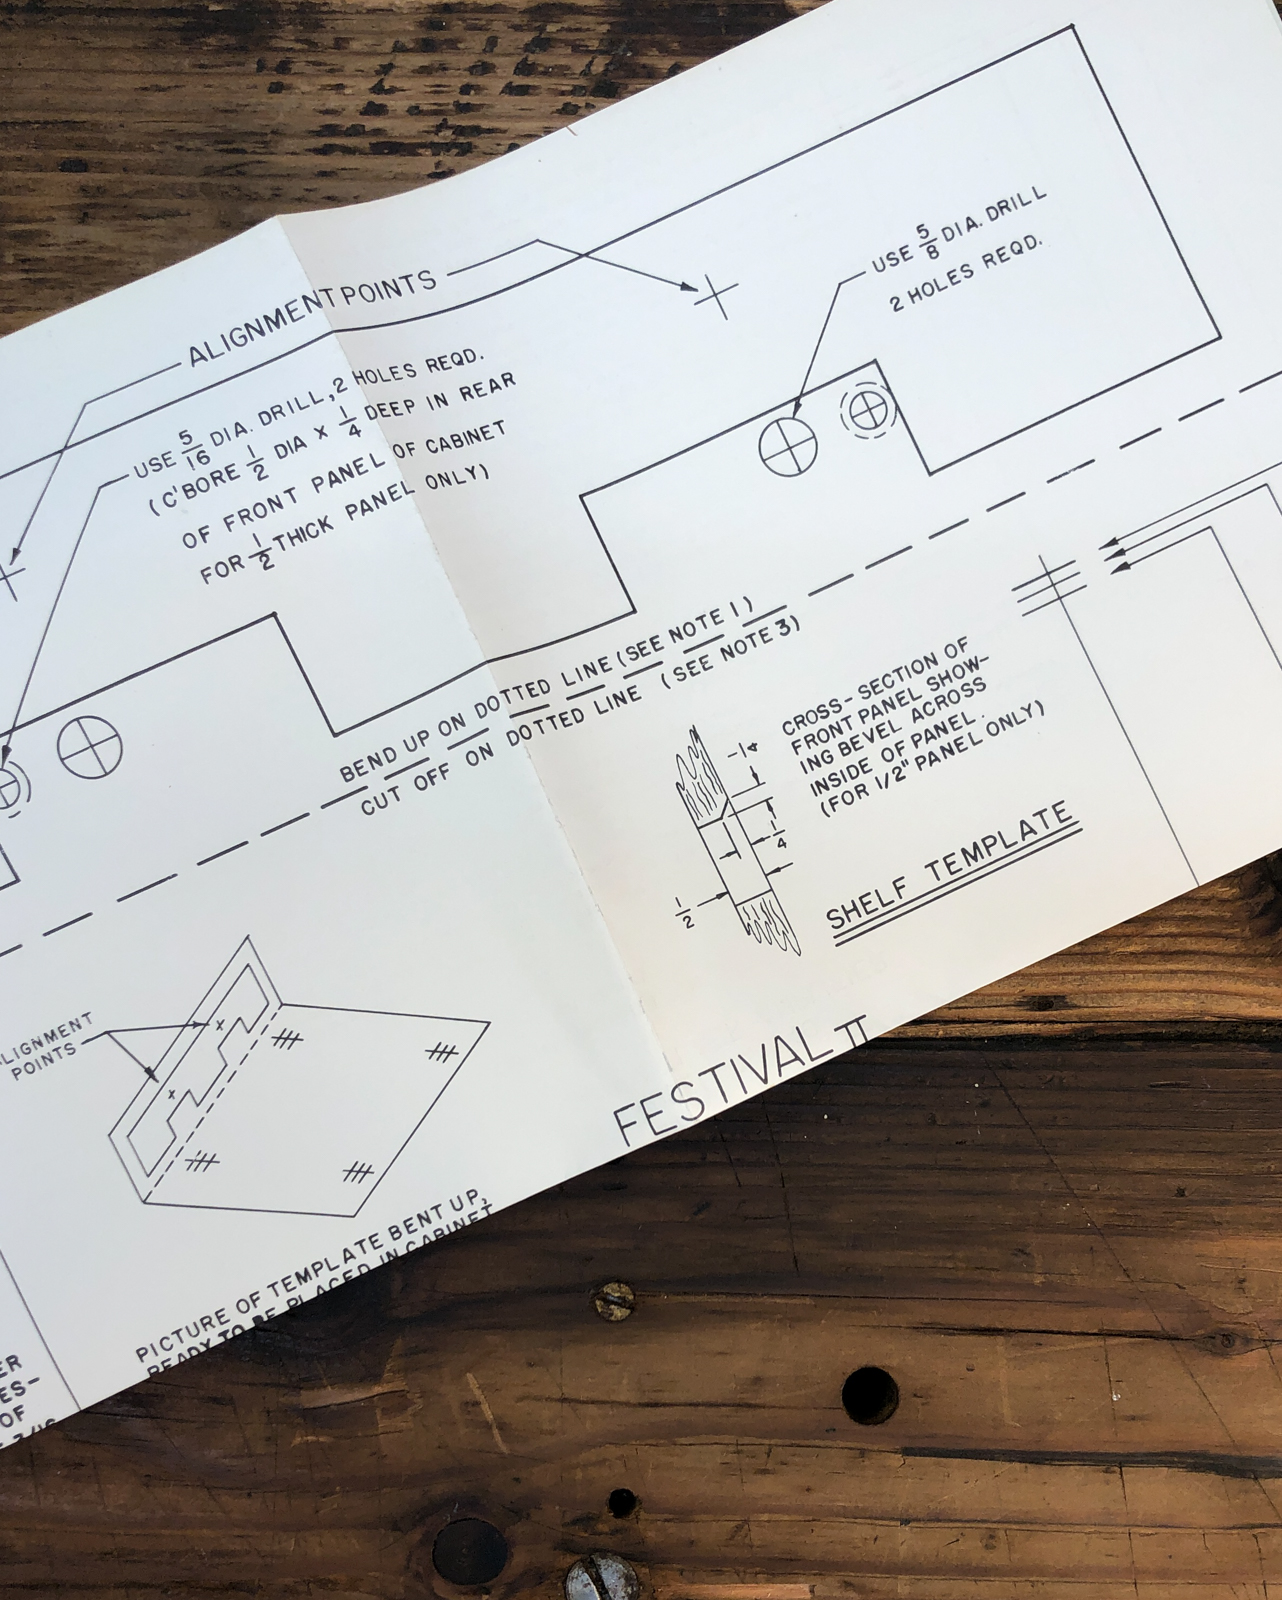 ALIGNMENT POINTS
USE 5/8 DIA. DRILL
2 HOLES REQD.
USE 5/16 DIA. DRILL, 2 HOLES REQD.
(C'BORE 1/2 DIA X 1/4 DEEP IN REAR
OF FRONT PANEL OF CABINET
FOR 1/2 THICK PANEL ONLY)
BEND UP ON DOTTED LINE (SEE NOTE 1)
CUT OFF ON DOTTED LINE (SEE NOTE 3)
CROSS-SECTION OF
FRONT PANEL SHOW-
ING BEVEL ACROSS
INSIDE OF PANEL.
(FOR 1/2" PANEL ONLY)
1/4
1/2
SHELF TEMPLATE
FESTIVAL II
LIGNMENT
POINTS
PICTURE OF TEMPLATE BENT UP,
READY TO BE PLACED IN CABINET
ER
ES-
OF